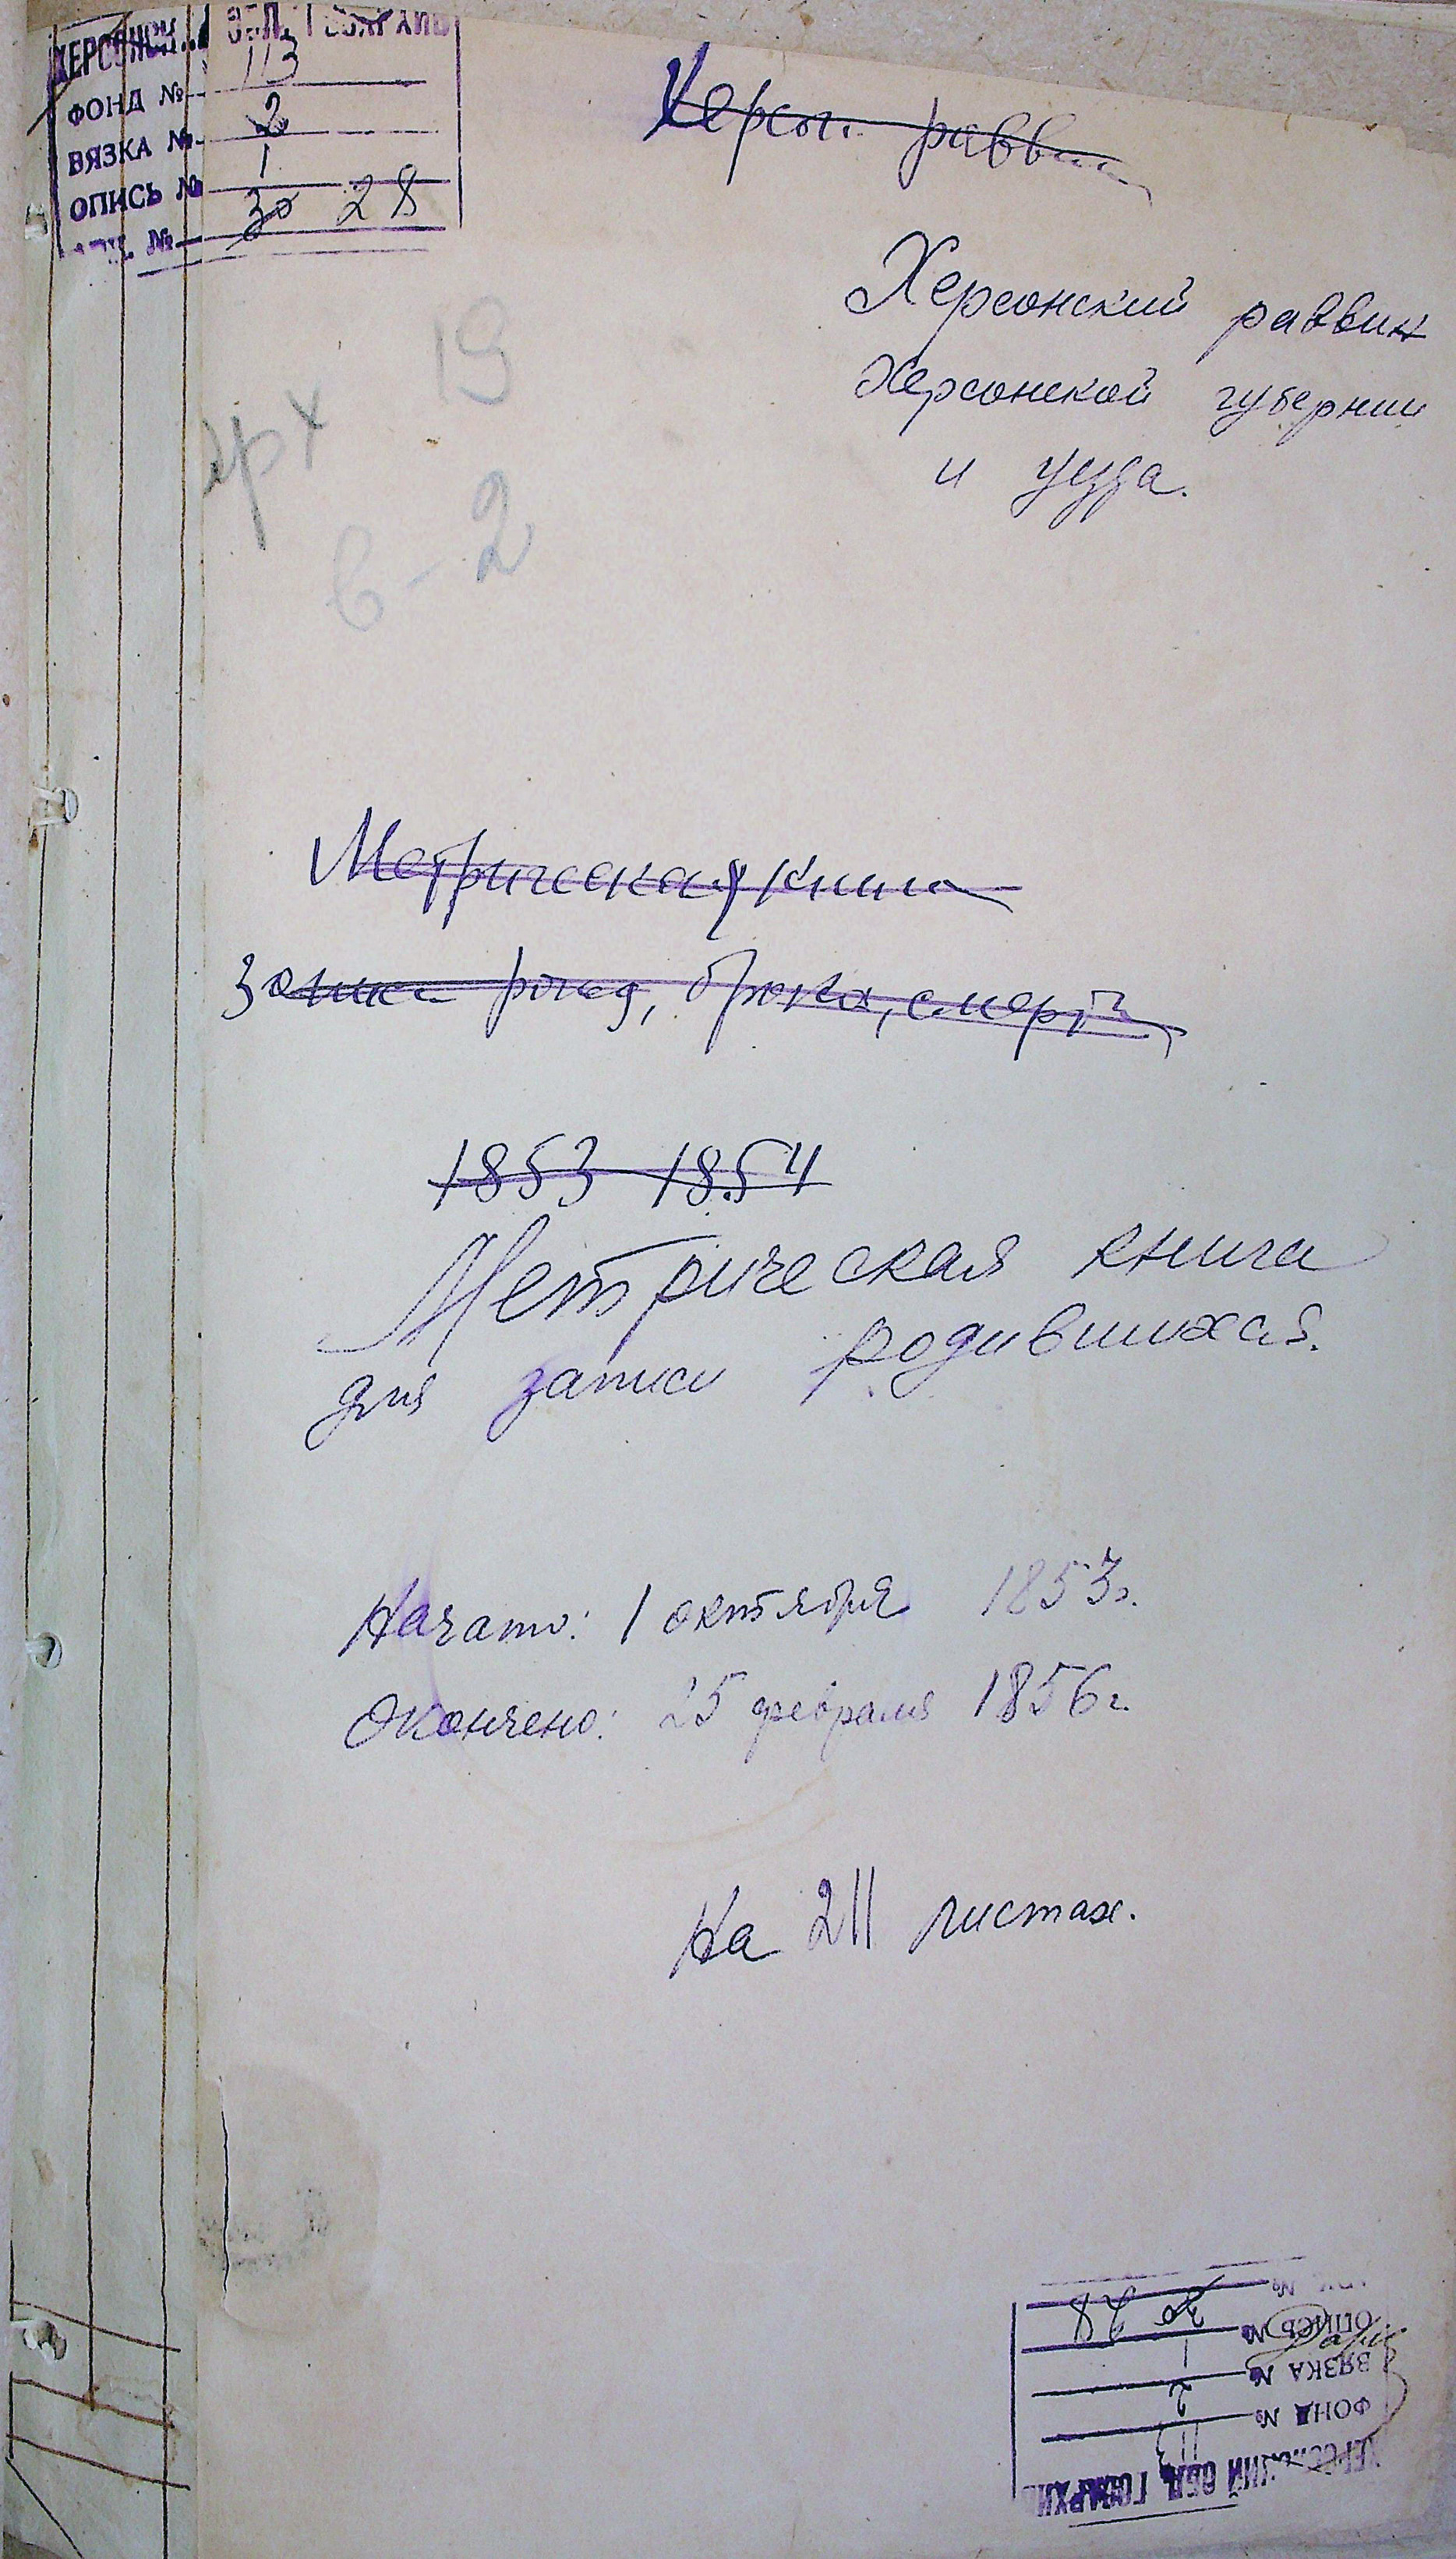 ХЕРСОНСК. ОБЛ. ГОСАРХИВ
ФОНД № 113
ВЯЗКА № 2
ОПИСЬ № 1
№ 30 28
Херсон. раввин
Херсонский раввин
Херсонской губернии
и уезда.
19
арх
6-2
Метрическая книга
записи рожд, брака, смерти
1853-1854
Метрическая книга
для записи родившихся.
Начато: 1 октября 1853г.
Окончено: 25 февраля 1856г.
На 211 листах.
ХЕРСОНСКИЙ ОБЛ. ГОСАРХИВ
ФОНД № 113
ВЯЗКА № 2
ОПИСЬ № 1
№ 30 28